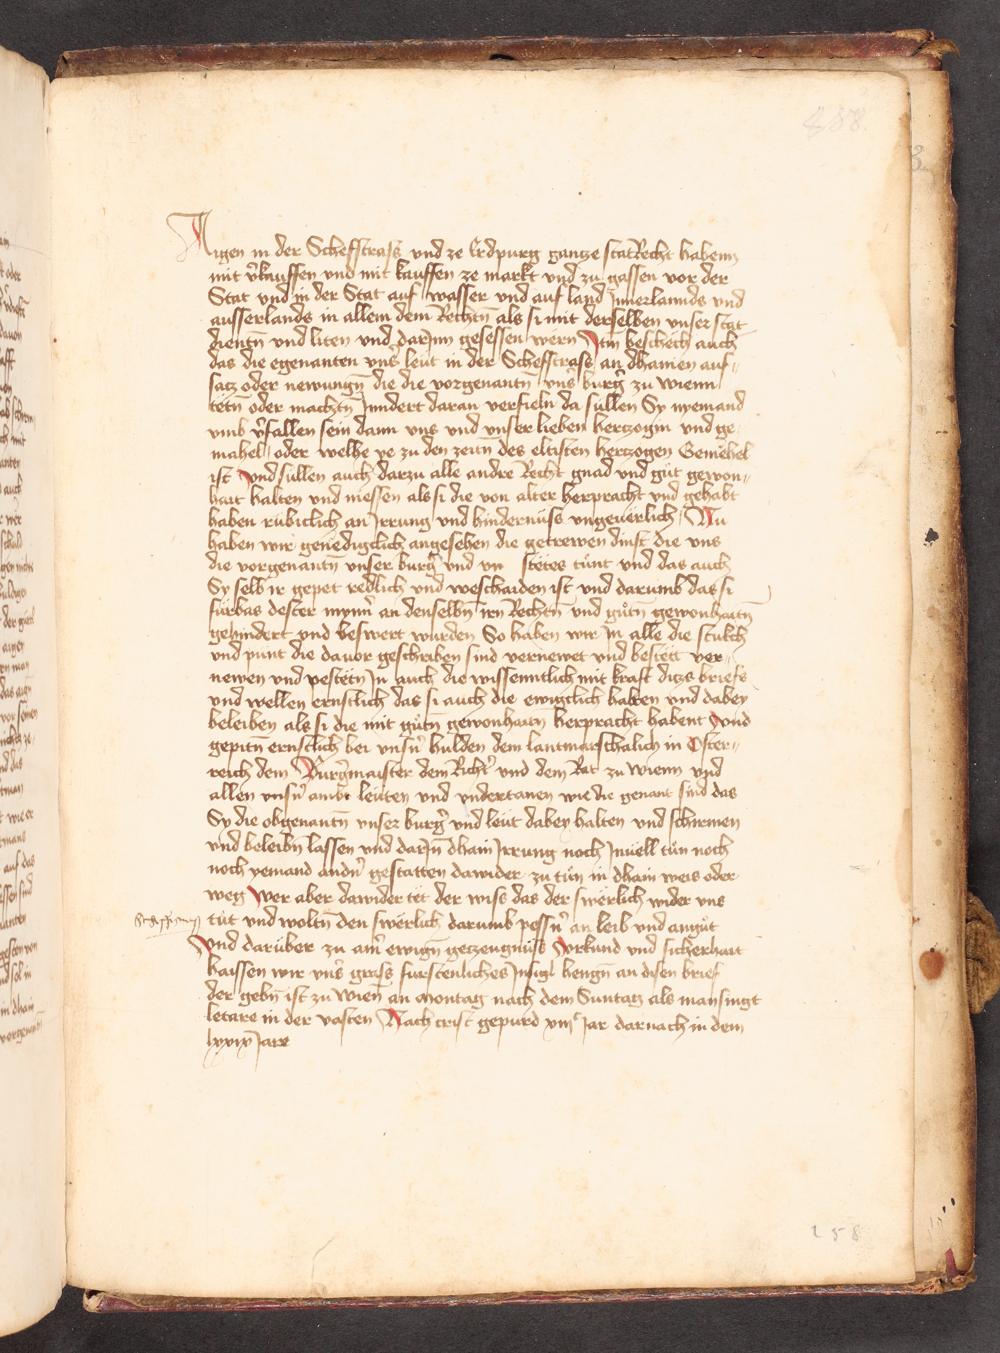 Aigen in der Scheffstrass und ze Erdpurg gantze statRecht habenn
mit v̾kauffen und mit kauffen ze markt und zu gassen vor der
Stat und in der Stat auf wasser und auf land Innerlannds und
ausserlands in allem dem Rechtn̄ als si mit derselben unser stat
dientn̄ und liten und darInn gesessen wern Itm̄ beschech auch
das die egenanten uns̾ leut in der Scheffstrass an dhainen auf-
satz oder newungn̄ die die vorgenantn̄ uns̾ burg̾ zu wienn
tetn̄ oder machtn̄ Inndert daran verfieln da sullen Sy nyemand
umb v̾fallen sein dann uns und unser lieben hertzogin und ge-
mahel oder welhe ye zu den zeitn̄ des eltisten hertzogen Gemehel
ist Und sullen auch darzu alle andre Recht gnad und gut gewon-
hait halten und niessen als si die von alter herpracht und gehabt
haben rubiclich an Irrung und hindernüss ungeuerlich Nu
haben wir genedigclich angesehen die getrewen dinst die uns
die vorgenantn̄ unser burg̾ und un stetes tunt und das auch
Sy selb ir gepet redlich und weschaiden ist und darumb das si
furbas dester mynn̾ an denselbn̄ irn Rechtn̄ und gůtn̄ gewonhaitn̄
gehindert und beswert wurden So haben wir In alle die stukch
und punt die dauor geschriben sind vernewet und bestett ver-
newen und vestetn̄ In auch die wissenntlich mit kraft ditzs briefs
und wellen ernstlich das si auch die ewigclich haben und dabey
beleiben als si die mit gůtn̄ gewonhaitn̄ herpracht habent Und
gepitn̄ ernstlich bei unsn̾ hulden dem lantmarschalich in Oster-
reich dem Burgmaister dem Richt̾ und dem Rat zu wienn und
allen unsn̾ ambt leuten und undertanen wie die genant sind das
Sy die obgenantn̄ unser burg̾ und leut dabey halten und schirmen
und beleibn̄ lassen und darIn̄ dhain Irrung noch Inuell tůn noch
noch yemand andn̾ gestatten dawider zu tůn in dhain weis oder
weg Wer aber dawider tet der wiss das der swerlich wider uns
tut und woltn̄ den swerlich darumb pessn̾ an leib und an gut
Und darüber zu am̾ ewign̄ getzeugnüss Urkund und sicherhait
haissen wir uns̾ gross furstenliches Insigl hengn̄ an disen brief
der gebn̄ ist zu Wienn̄ an Montag nach dem Suntag als man singt
letare in der vasten Nach crist gepurd xiijᶜ Jar darnach in dem
lxxix Jare
258